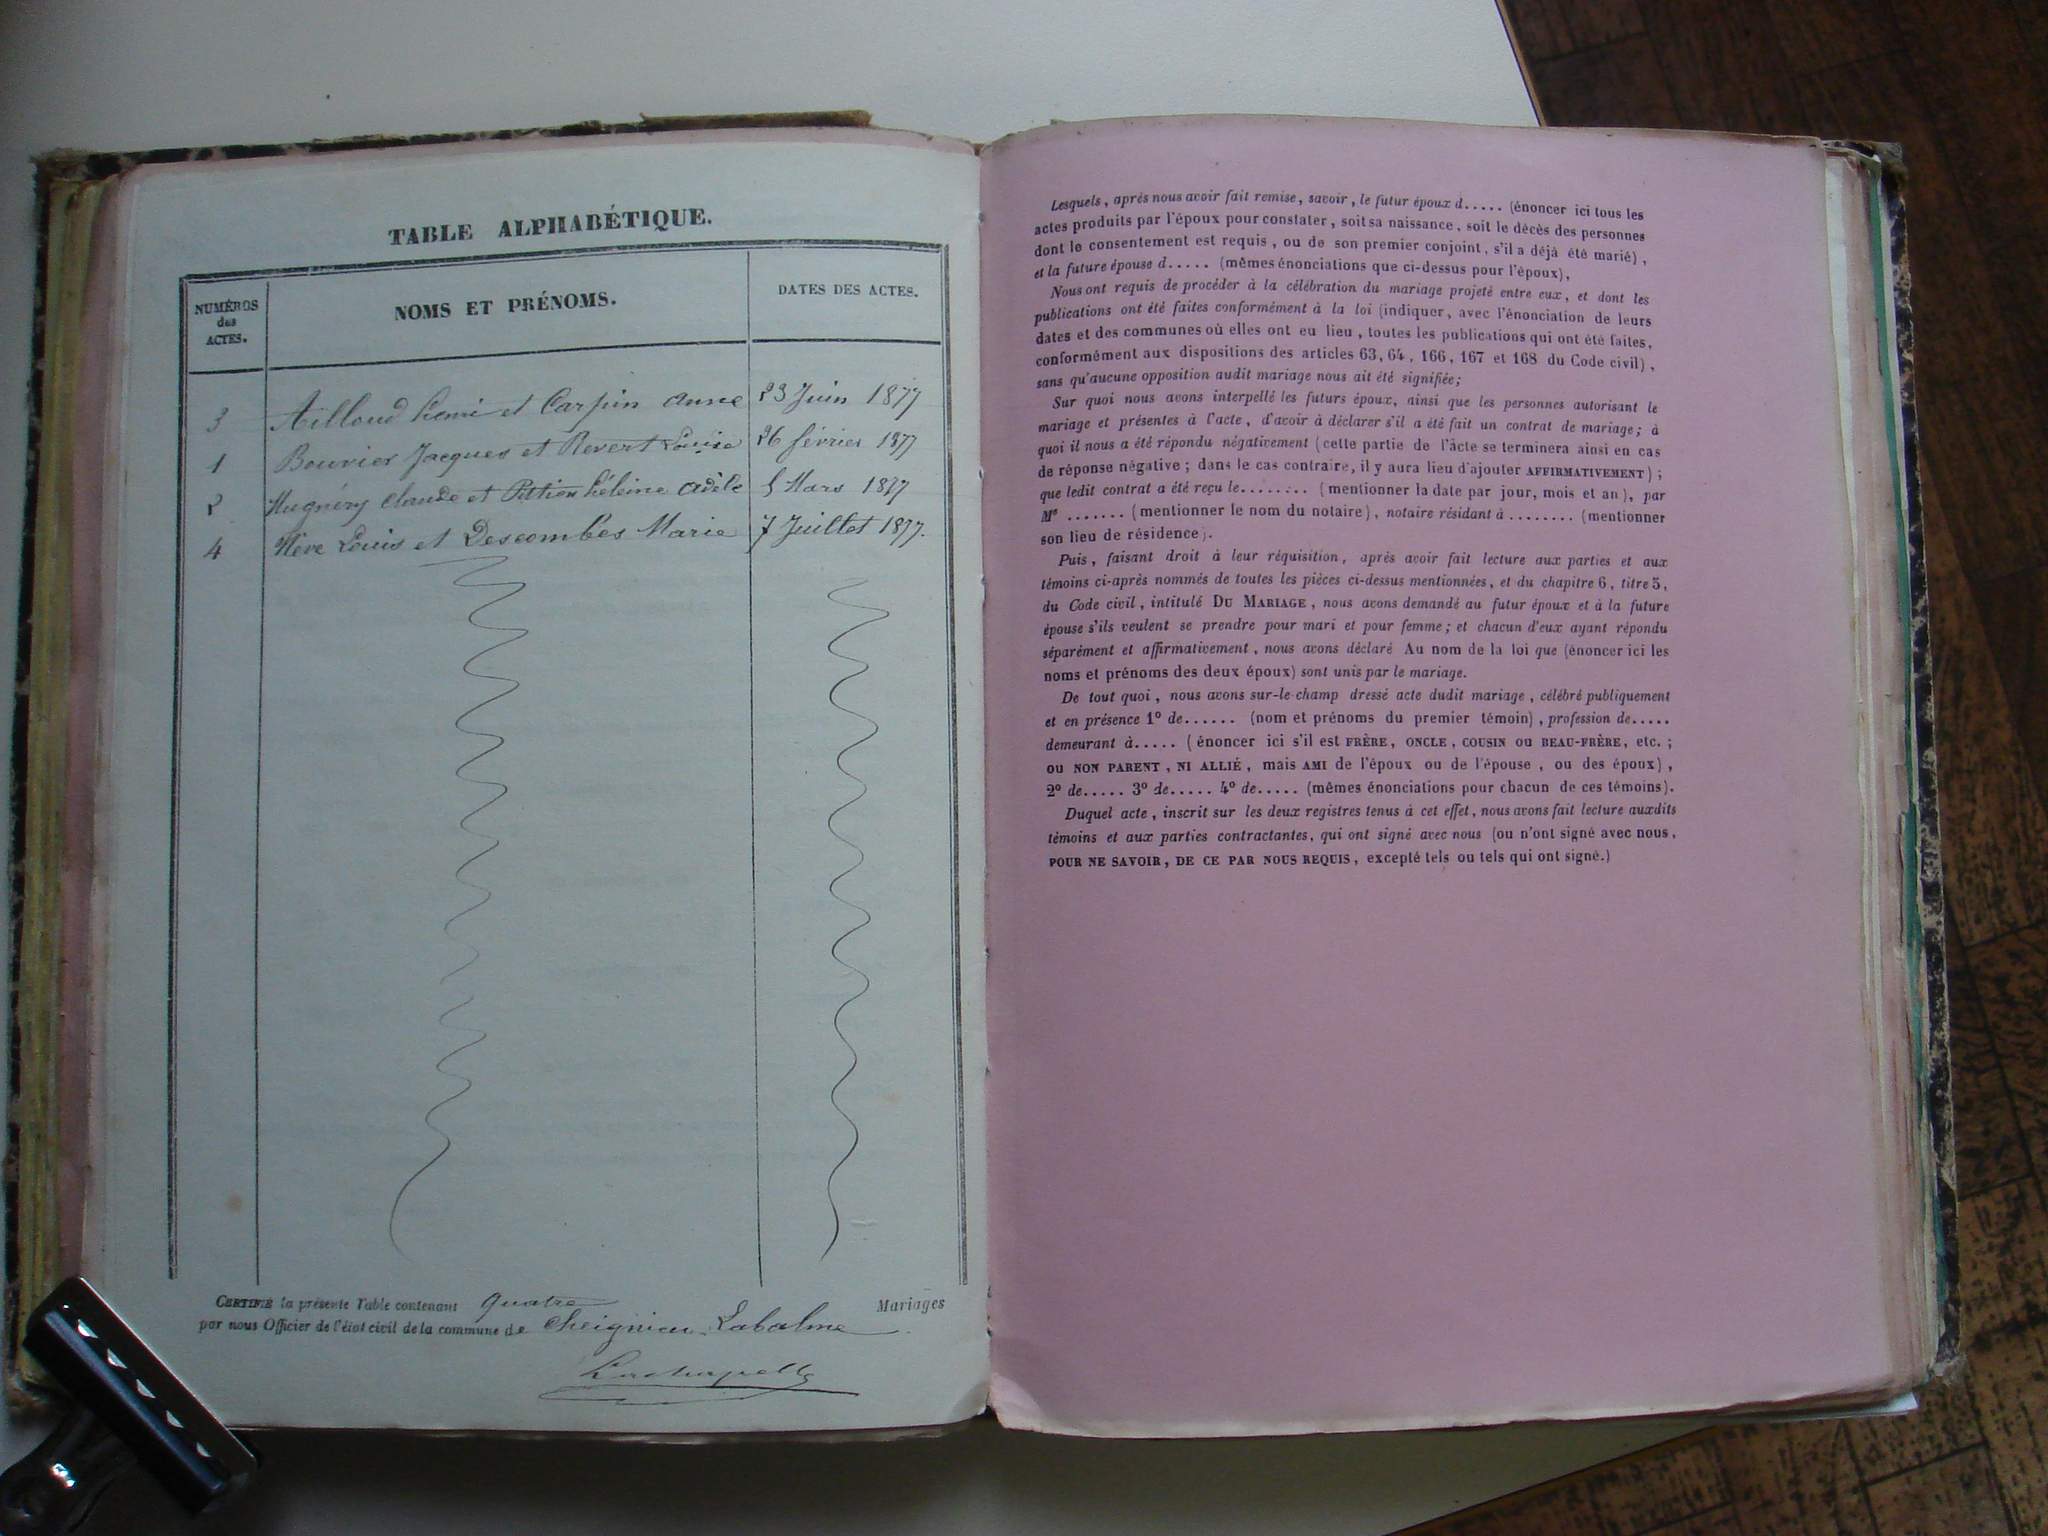 TABLE ALPHABÉTIQUE.
NUMÉROS
des
ACTES.
NOMS ET PRÉNOMS.
DATES DES ACTES.
3 Ailloud henri et Carpin anne 23 Juin 1877
1 Bouvier Jacques et Revert Louise 26 février 1877
2 Hugnéry Claude et héleine adèle 5 Mars 1877
4 Nève Louis et Descombes Marie 7 Juillet 1877.
CERTIFIÉ la présente Table contenant quatre Mariages
par nous Officier de l'état civil de la commune de Cheignieu-Labalme.
Lesquels, après nous avoir fait remise, savoir, le futur époux d..... (énoncer ici tous les
actes produits par l'époux pour constater, soit sa naissance, soit le décès des personnes
dont le consentement est requis, ou de son premier conjoint, s'il a déjà été marié),
et la future épouse d..... (mêmes énonciations que ci-dessus pour l'époux),
Nous ont requis de procéder à la célébration du mariage projeté entre eux, et dont les
publications ont été faites conformément à la loi (indiquer, avec l'énonciation de leurs
dates et des communes où elles ont eu lieu, toutes les publications qui ont été faites,
conformément aux dispositions des articles 63, 64, 166, 167 et 168 du Code civil),
sans qu'aucune opposition audit mariage nous ait été signifiée;
Sur quoi nous avons interpellé les futurs époux, ainsi que les personnes autorisant le
mariage et présentes à l'acte, d'avoir à déclarer s'il a été fait un contrat de mariage; à
quoi il nous a été répondu négativement (cette partie de l'âcte se terminera ainsi en cas
de réponse négative; dans le cas contraire, il y aura lieu d'ajouter AFFIRMATIVEMENT);
que ledit contrat a été reçu le........ (mentionner la date par jour, mois et an), par
Me ....... (mentionner le nom du notaire), notaire résidant à ........ (mentionner
son lieu de résidence).
Puis, faisant droit à leur réquisition, après avoir fait lecture aux parties et aux
témoins ci-après nommés de toutes les pièces ci-dessus mentionnées, et du chapitre 6, titre 5,
du Code civil, intitulé DU MARIAGE, nous avons demandé au futur époux et à la future
épouse s'ils veulent se prendre pour mari et pour femme; et chacun d'eux ayant répondu
séparément et affirmativement, nous avons déclaré Au nom de la loi que (énoncer ici les
noms et prénoms des deux époux) sont unis par le mariage.
De tout quoi, nous avons sur-le-champ dressé acte dudit mariage, célébré publiquement
et en présence 1° de...... (nom et prénoms du premier témoin), profession de.....
demeurant à..... (énoncer ici s'il est FRÈRE, ONCLE, COUSIN ou BEAU-FRÈRE, etc.;
ou NON PARENT, NI ALLIÉ, mais AMI de l'époux ou de l'épouse, ou des époux),
2° de..... 3° de..... 4° de..... (mêmes énonciations pour chacun de ces témoins).
Duquel acte, inscrit sur les deux registres tenus à cet effet, nous avons fait lecture auxdits
témoins et aux parties contractantes, qui ont signé avec nous (ou n'ont signé avec nous,
POUR NE SAVOIR, DE CE PAR NOUS REQUIS, excepté tels ou tels qui ont signé.)